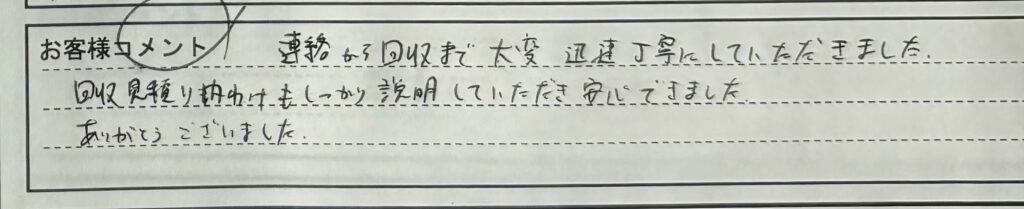 お客様コメント 連絡から回収まで大変迅速丁寧にしていただきました.
回収見積り内わけもしっかり説明していただき安心できました
ありがとうございました.